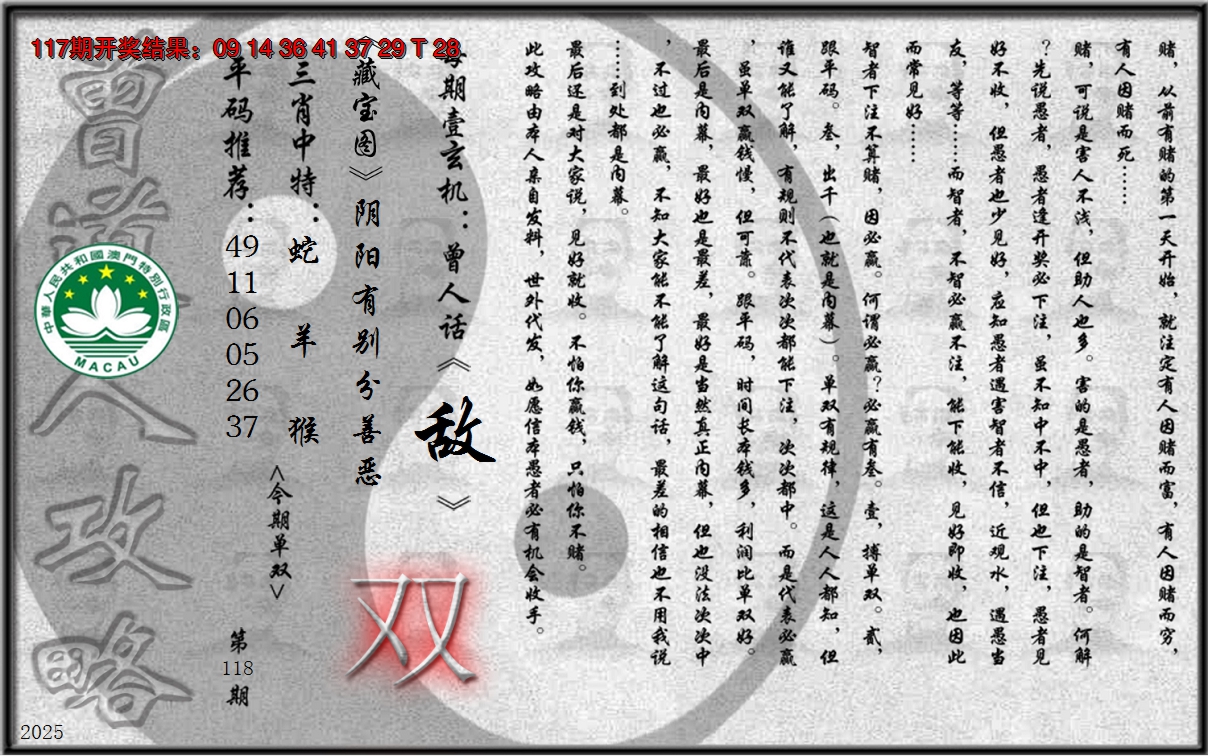 117期开奖结果：09 14 36 41 37 29 T 28
赌，从前有赌的第一天开始，就注定有人因赌而富，有人因赌而穷，
有人因赌而死……
赌，可说是害人不浅，但助人也多。害的是愚者，助的是智者。何解
？先说愚者，愚者逢开奖必下注，虽不知中不中，但也下注，愚者见
好不收，但愚者也少见好，应知愚者遇害智者不信，近观水，遇愚当
友，等等……而智者，不智必赢不注，能下能收，见好即收，也因此
而常见好……
智者下注不算赌，因必赢。何谓必赢？必赢有叁。壹，搏单双。贰，
跟平码。叁，出千（也就是内幕）。单双有规律，这是人人都知，但
谁又能了解，有规则不代表次次都能下注，次次都中。而是代表必赢
，虽单双赢钱慢，但可靠。跟平码，时间长本钱多，利润比单双好。
最后是内幕，最好也是最差，最好是当然真正内幕，但也没法次次中
，不过也必赢，不知大家能不能了解这句话，最差的相信也不用我说
……到处都是内幕。
最后还是对大家说，见好就收。不怕你赢钱，只怕你不赌。
此攻略由本人亲自发料，世外代发，如愿信本愚者必有机会收手。
每期壹玄机：曾人话《敌》
《藏宝图》阴阳有别分善恶
双
三肖中特：蛇 羊 猴
<今期单双>
平码推荐：49 11 06 05 26 37
第118期
曾道人攻略
中華人民共和國澳門特別行政區
MACAU
2025